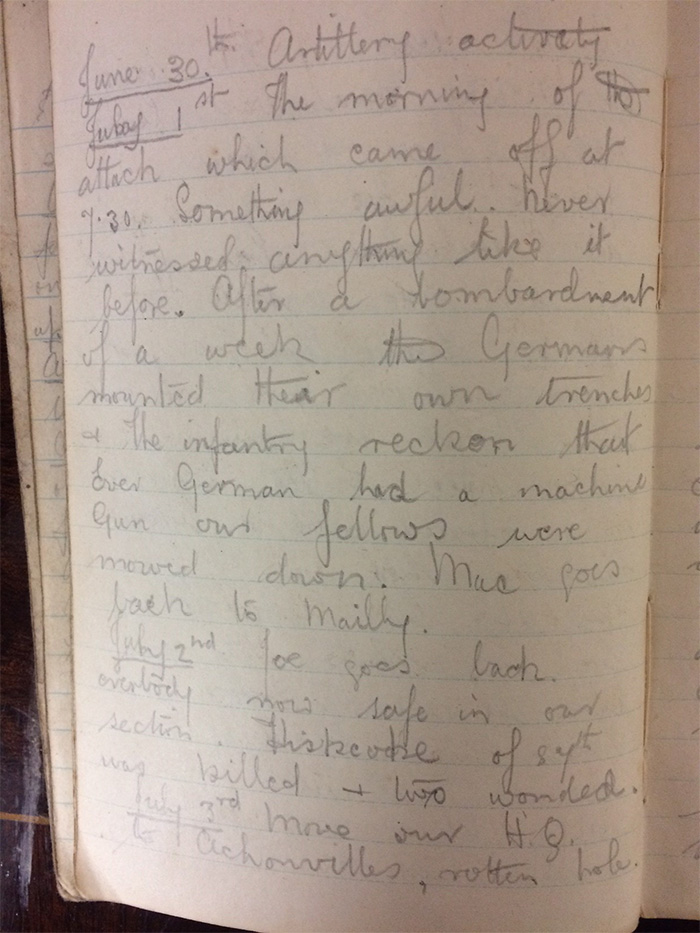 June 30. th Artillery activaty
Jubay 1 st The morning of the
attack which came off at
7.30. Something awful. Never
witnessed anything like it
before. After a bombardment
of a week the Germans
mounted their own trenches
+ the infantry reckon that
ever German had a machine
Gun our fellows were
mowed down. Mac goes
back to Mailly.
July 2nd Joe goes back.
everbody now safe in our
section. of 29th
was killed + two wonded.
July 3rd Move our H.Q.
to Achonvilles, rotten hole.